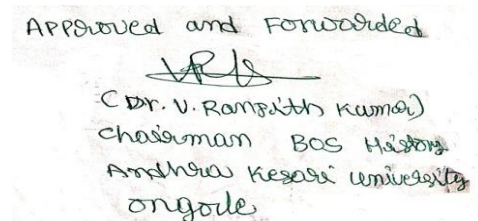 Approved and Forwarded
(Dr. V. Ranjith Kumar)
Chairman BOS History
Andhra Kesari University
ongole